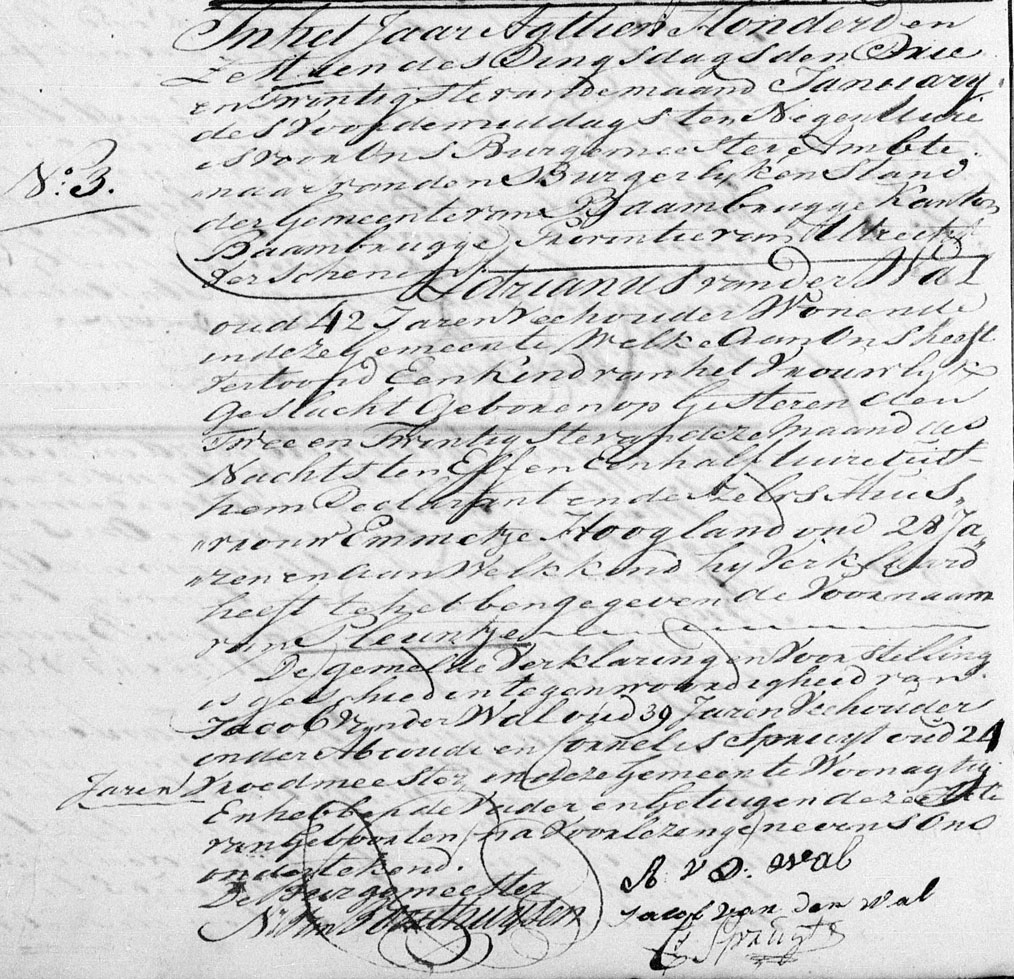 In het Jaar Agttien Honderd en
Zestien des Dingsdags den Drie
en Twintigste van de maand January
des Voordemiddags ten Negen Uure
is voor Ons Burgemeester Ambte
No: 3.
naar van den Burgerlyken Stand
der Gemeente van Baambrugge Kanton
Baambrugge, Provintie van Utrecht
Verschenen Adrianus van der Wal
oud 42 Jaren Veehouder Wonende
in deze Gemeente Welke Aan Ons heeft
vertoond Een Kind van het Vrouwlyk
Geslacht Geboren op Gisteren den
Twee en Twintigste van deze Maand des
Nachts ten Elf en Een half uure uit
hem Declarant en deszelfs Huis„
„vrouw Emmetje Hoogland oud 28 Ja„
„ren en Aan Welk kind hy Verklaard
heeft te hebben gegeven de Voornaam
van Pleuntje
De gemelde Verklaring en Voorstelling
is geschied in tegenwoordigheid van
Jacob Van der Wal oud 39 Jaren Veehouder
onder Abcoude en Cornelis Spruyt oud 24
Jaren Vroedmeester in deze Gemeente Woonagtig
En hebben de Vader en Getuigen deze Acte
van Geboorten, na Voorlezing nevens Ons
ondertekend.
De Burgemeester
A. v D. Wal
Jacob van der Wal
C. Spruyt